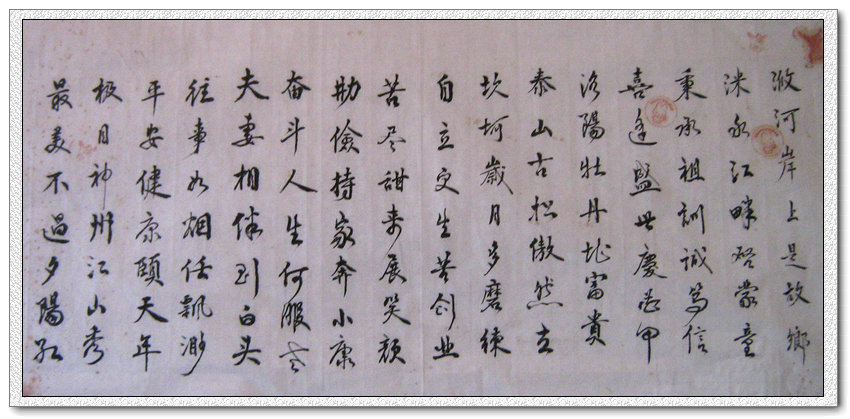 潋河岸上是故鄉
沭水江畔啓蒙童
秉承祖訓誠篤信
喜逢盛世慶花甲
洛陽牡丹地富貴
泰山古松傲然立
坎坷歲月多磨練
自立文生苦创业
苦尽甜来展笑颜
勤儉持家奔小康
奋斗人生何服老
夫妻相伴到白头
往事如烟任飄渺
平安健康頤天年
极目神州江山秀
最美不過夕陽红